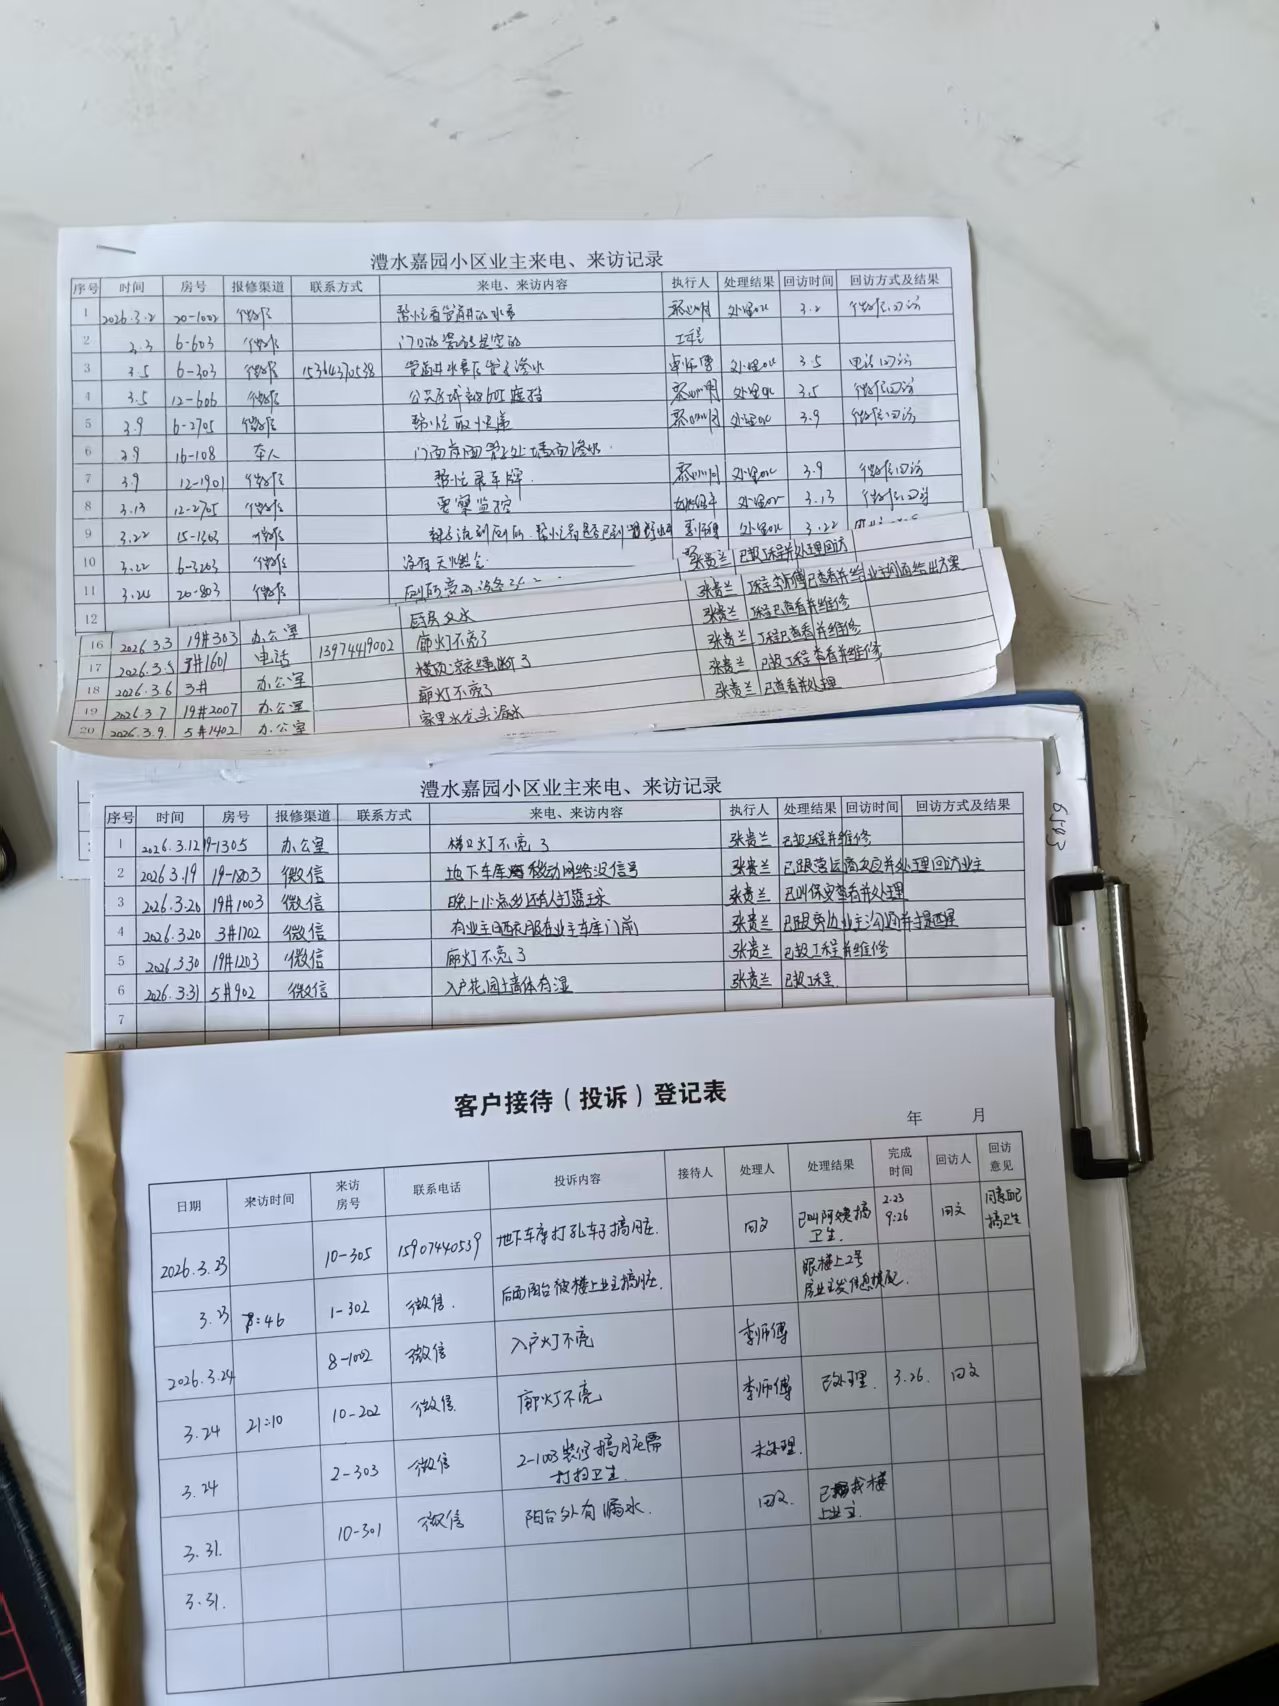 澧水嘉园小区业主来电、来访记录
序号 时间 房号 报修渠道 联系方式 来电、来访内容 执行人 处理结果 回访时间 回访方式及结果
1 2026.3.2 20-1002 微信 帮忙看管道井的水表 处理ok 3.2 微信回访
2 3.3 6-603 微信 门口的瓷砖是空的 工程
3 3.5 6-303 微信 15364370538 管道井水表后管子渗水 卓师傅 处理ok 3.5 电话回访
4 3.5 12-606 微信 公共区域 处理ok 3.5 微信回访
5 3.9 6-2705 微信 帮忙取快递 处理ok 3.9 微信回访
6 3.9 16-108 本人 门面后面管子处墙面渗水
7 3.9 12-1901 微信 帮忙录车牌 处理ok 3.9 微信回访
8 3.13 12-2705 微信 要察监控 处理ok 3.13 微信回访
9 3.22 15-1303 微信 帮忙看是否已到 师傅 处理ok 3.22
10 3.22 6-3203 微信 没有天燃气 张贵兰 已报工程并处理回访
11 3.24 20-803 微信 张贵兰 工程李师傅已查看并给业主回面给出方案
12 厨房 水 张贵兰 工程已查看并维修
16 2026.3.3 19#303 办公室 廊灯不亮了 张贵兰 工程已查看并维修
17 2026.3.5 3#1601 电话 13974419002 楼顶凉绳断了 张贵兰 已报工程查看并维修
18 2026.3.6 3# 办公室 廊灯不亮了 张贵兰 已查看并处理
19 2026.3.7 19#2007 办公室 家里水龙头漏水
20 2026.3.9. 5#1402 办公室
澧水嘉园小区业主来电、来访记录
6503
序号 时间 房号 报修渠道 联系方式 来电、来访内容 执行人 处理结果 回访时间 回访方式及结果
1 2026.3.12 19-1305 办公室 梯口灯不亮了 张贵兰 已报工程并维修
2 2026.3.19 19-1803 微信 地下车库移动网络没信号 张贵兰 已跟营运商反应并处理回访业主
3 2026.3.20 19#1003 微信 晚上11点多还有人打篮球 张贵兰 已叫保安查看并处理
4 2026.3.20 3#1702 微信 有业主晒衣服在业主车库门前 张贵兰 已跟旁边业主沟通并提醒
5 2026.3.30 19#1203 微信 廊灯不亮了 张贵兰 已报工程并维修
6 2026.3.31 5#902 微信 入户花园墙体有湿 张贵兰 已报工程.
7
客户接待（投诉）登记表
年 月
日期 来访时间 来访房号 联系电话 投诉内容 接待人 处理人 处理结果 完成时间 回访人 回访意见
2026.3.23 10-305 15907440539 地下车库打孔车子搞脏. 田文 已叫阿姨搞卫生. 2.23 9:26 田文 同意自己搞卫生
3.23 8:46 1-302 微信. 后面阳台被楼上业主搞脏. 跟楼上2号房业主发信息提醒.
2026.3.24 8-1002 微信 入户灯不亮 李师傅
3.24 21:10 10-202 微信 廊灯不亮 李师傅 已处理. 3.26. 田文
3.24 2-303 微信 2-1003装修搞脏需打扫卫生. 未处理.
3.31. 10-301 微信 阳台外有漏水. 田文. 已找楼上业主.
3.31.